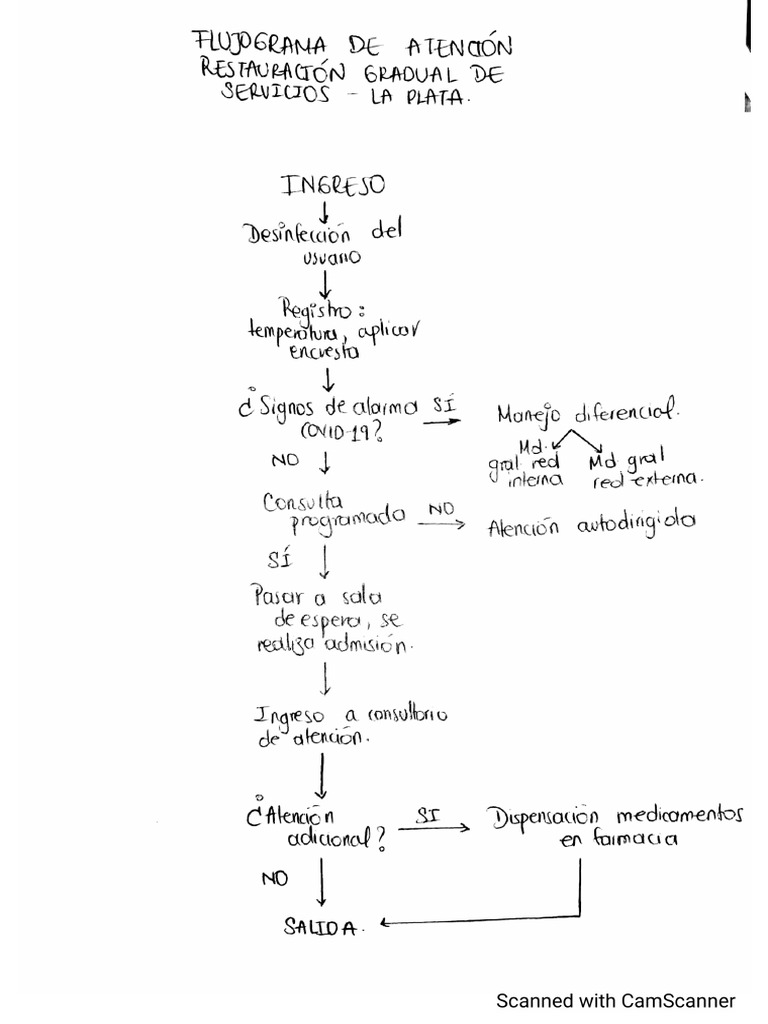 FLUJOGRAMA DE ATENCIÓN
RESTAURACIÓN GRADUAL DE
SERVICIOS - LA PLATA.
INGRESO
Desinfección del
usuario
Registro:
temperatura, aplicar
encuesta
¿Signos de alarma SÍ
COVID-19?
Manejo diferencial.
Md.
gral red
interna
Md gral
red externa.
NO
Consulta
programada NO
Atención autodirigida
SÍ
Pasar a sala
de espera, se
realiza admisión.
Ingreso a consultorio
de atención.
¿Atención
adicional?
SI
Dispensación medicamentos
en farmacia
NO
SALIDA.
Scanned with CamScanner